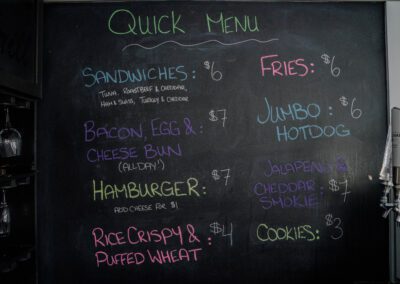 QUICK MENU
SANDWICHES: $6
TUNA, ROAST BEEF & CHEDDAR,
HAM & SWISS, TURKEY & CHEDDAR
BACON, EGG &: $7
CHEESE BUN
(ALL DAY!)
HAMBURGER: $7
ADD CHEESE FOR $1
RICE CRISPY & : $4
PUFFED WHEAT
FRIES: $6
JUMBO : $6
HOTDOG
JALAPENO &
CHEDDAR : $7
SMOKIE
COOKIES: $3